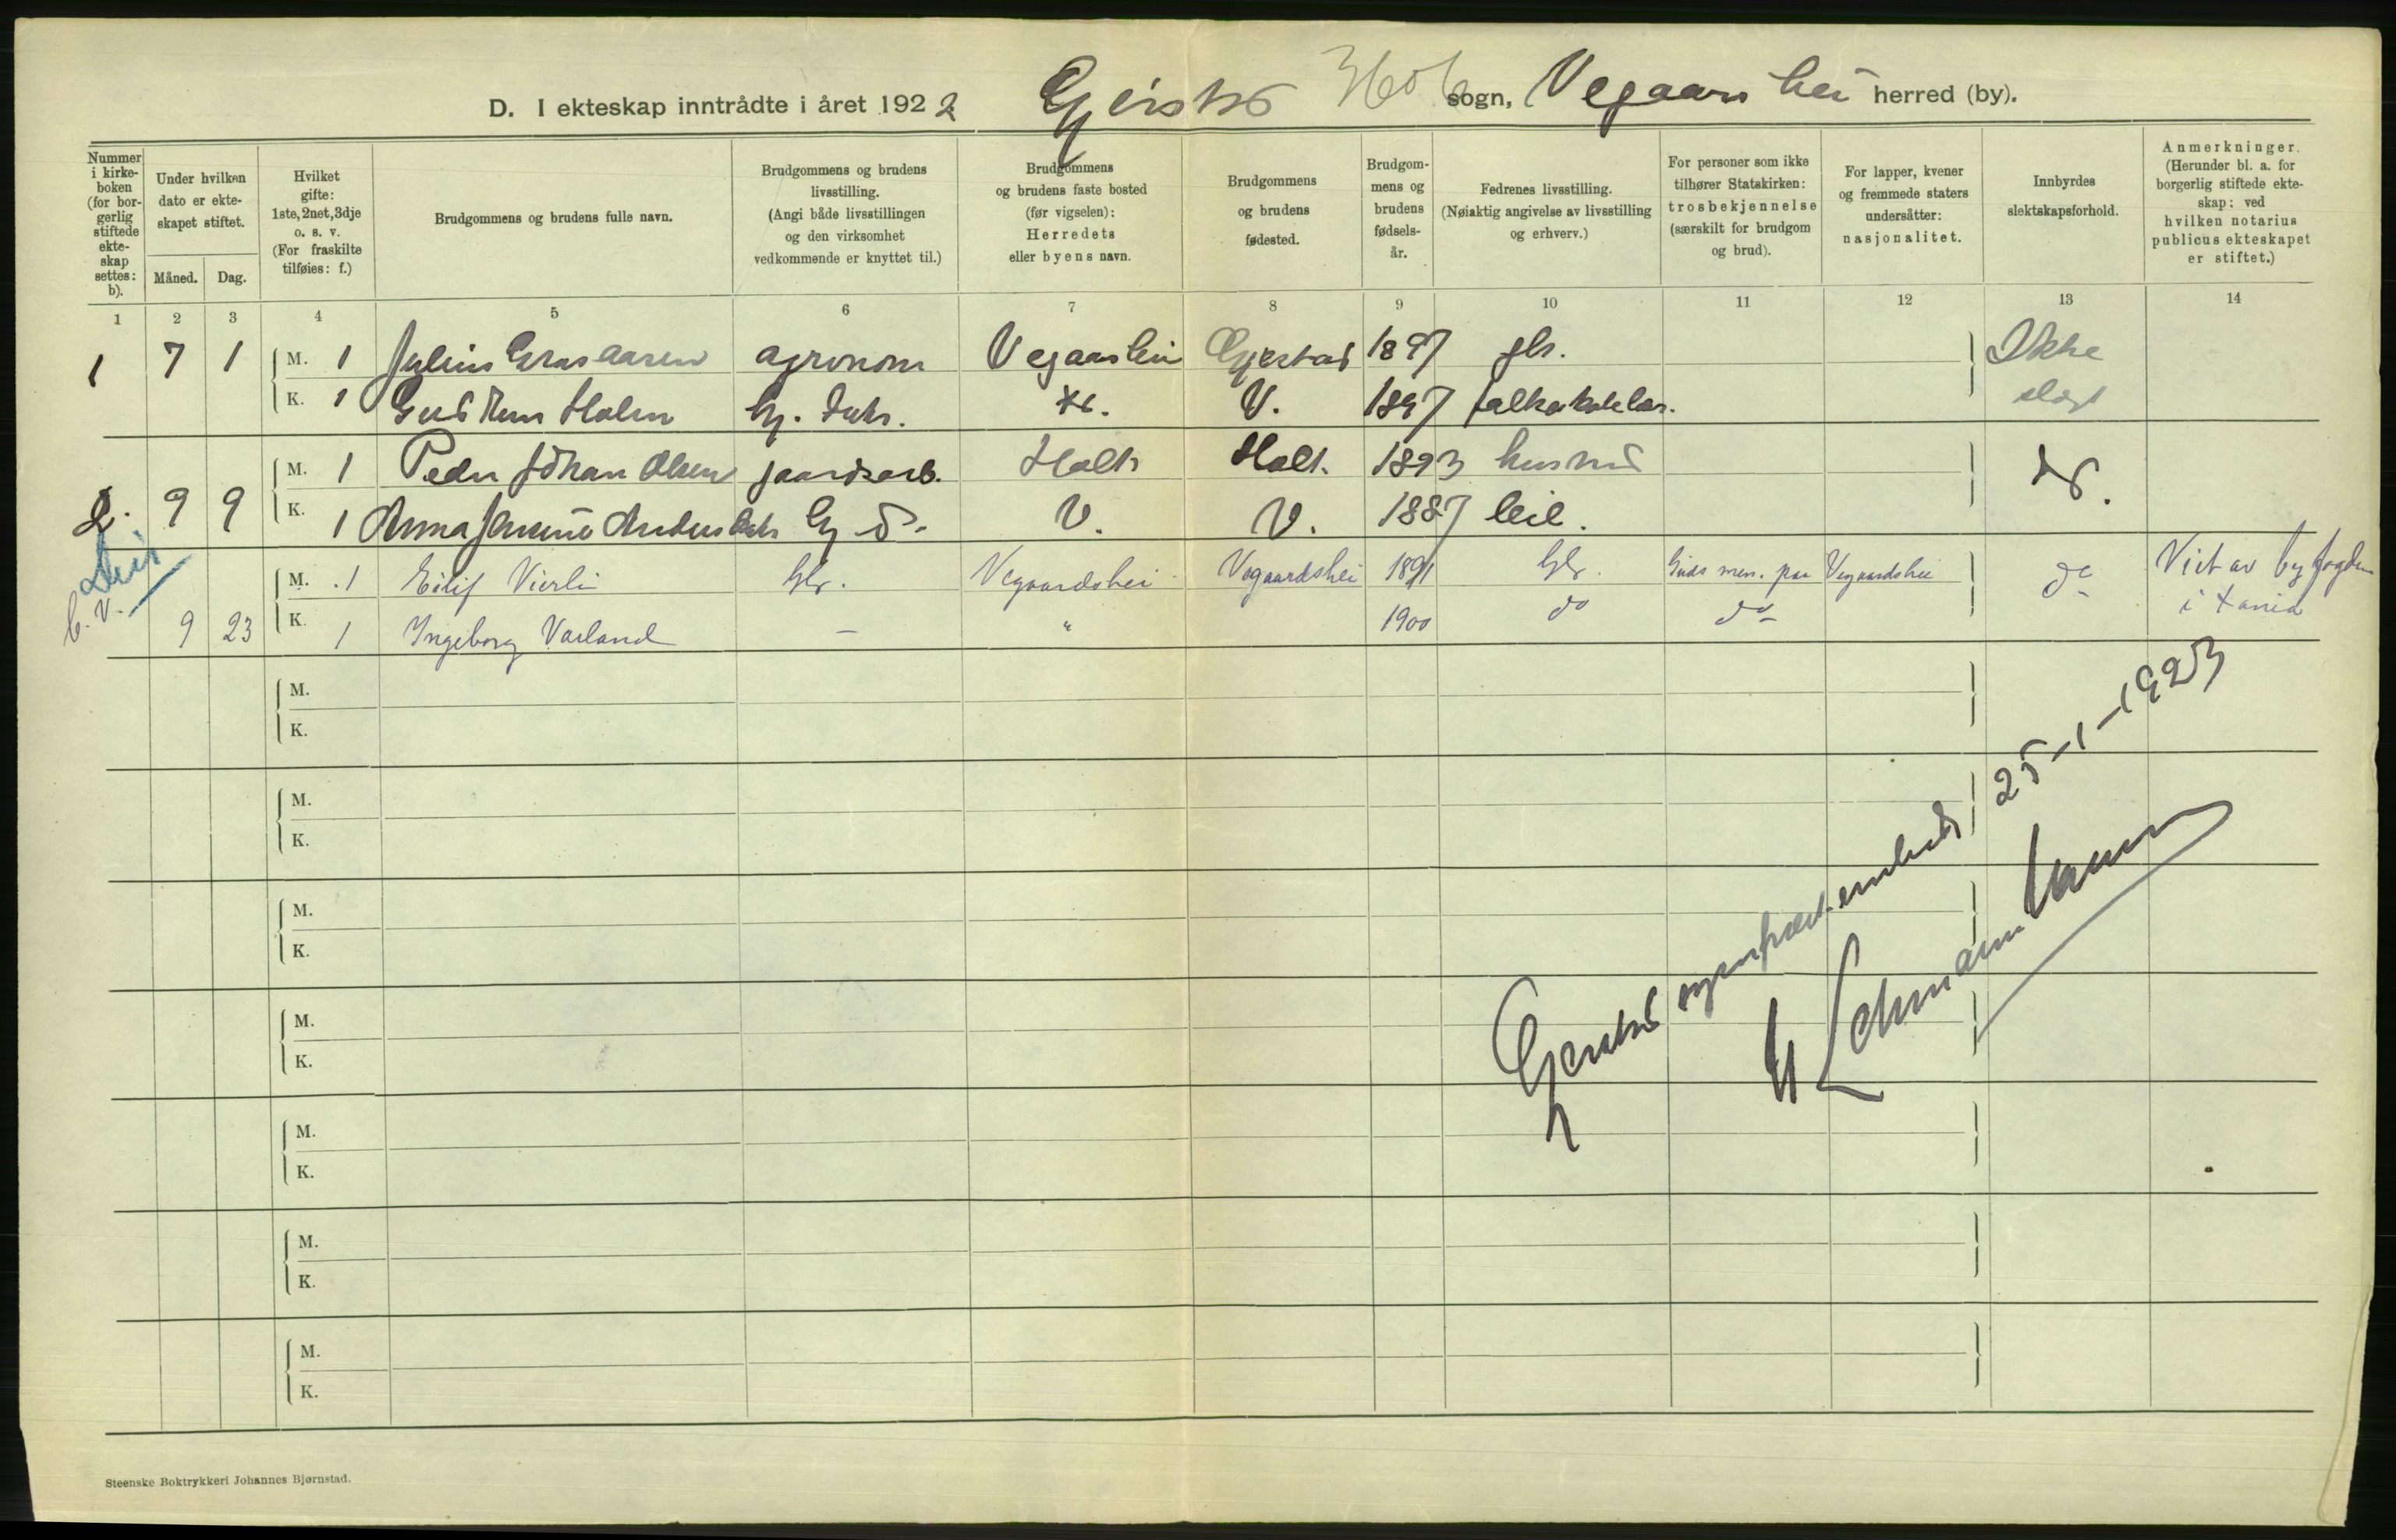 D. I ekteskap inntrådte i året 1922 Gjerstad sogn, Vegaarshei herred (by).
Nummer i kirke-boken (for bor-gerlig stiftede ekte-skap settes: b).
Under hvilken dato er ekte-skapet stiftet.
Måned. Dag.
Hvilket gifte: 1ste, 2net, 3dje o. s. v. (For fraskilte tilføies: f.)
Brudgommens og brudens fulle navn.
Brudgommens og brudens livsstilling. (Angi både livsstillingen og den virksomhet vedkommende er knyttet til.)
Brudgommens og brudens faste bosted (før vigselen): Herredets eller byens navn.
Brudgommens og brudens fødested.
Brudgom-mens og brudens fødsels-år.
Fedrenes livsstilling. (Nøiaktig angivelse av livsstilling og erhverv.)
For personer som ikke tilhører Statskirken: trosbekjennelse (særskilt for brudgom og brud).
For lapper, kvener og fremmede staters undersåtter: nasjonalitet.
Innbyrdes slektskapsforhold.
Anmerkninger. (Herunder bl. a. for borgerlig stiftede ekte-skap: ved hvilken notarius publicus ekteskapet er stiftet.)
1 2 3 4 5 6 7 8 9 10 11 12 13 14
1 7 1 M. 1 Julius Grasaasen agronom Vegaarshei Gjerstad 1897 gbr. Ikke
K. 1 Gudrun Holen G. datr. V. 1897 slegt
M. 1 Peder Johan Olsen gaardsarb. Holt Holt. 1893 husmd
2. 9 9 K. 1 Anna V. V. 1887 leil. do.
M. 1 Eilif Vierli Gbr. Vegaardshei Vegaardshei 1891 Gbr. Guds men. paa Vegaardshei do Viet av byfogden
b. v. 9 23 K. 1 Ingeborg Varland — " 1900 do do i
M.
K.
M.
K.
M.
K.
M.
K.
M.
K.
M.
K.
M.
K.
Gjerstad sogneprestembede 25-1-1923
Lehmann
Steenske Boktrykkeri Johannes Bjørnstad.